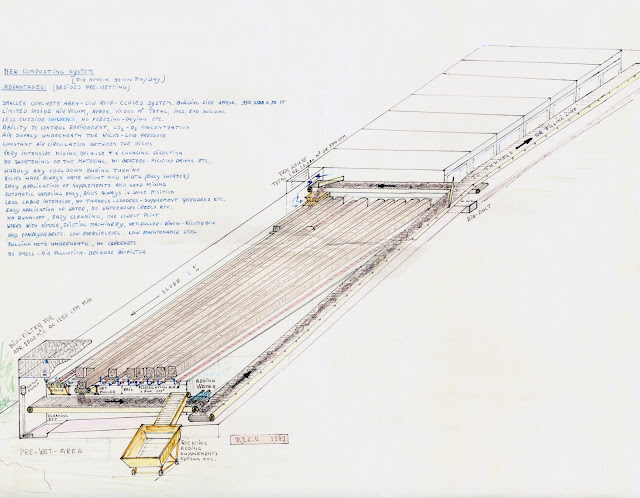 NEW COMPOSTING SYSTEM
(FOR APPROX. TN/DAY)
ADVANTAGES: (BESIDES PRE-WETTING)
SMALLER CONCRETE AREA - LOW ROOF - CLOSED SYSTEM. BUILDING SIZE APPROX. FT
LIMITED INSIDE AIR VOLUM, APROX. 10.000 M³ TOTAL, INCL. END BUILDING
LESS OUTSIDE INFLUENCE, NO FREEZING - DRYING ETC.
ABILITY TO CONTROL ENVIRONMENT, CO₂ - O₂ CONCENTRATION
AIR SUPPLY UNDERNEATH THE RICKS - LOW PRESSURE
CONSTANT AIR CIRCULATION BETWEEN THE RICKS
VERY INTENSIVE MIXING BECAUSE 4 X CHANGING DIRECTION
NO SHORTENING OF THE MATERIAL, NO BEATERS - PILLING DRUMS ETC.
HARDLY ANY COOL DOWN DURING TURNING
RICKS HAVE ALWAYS SAME HEIGHT AND WIDTH (ONLY SHORTER)
EASY APPLICATION OF SUPPLEMENTS AND GOOD MIXING
AUTOMATIC SAMPLING EASY, RICKS ALWAYS IN SAME POSITION
LESS LABOR INTENSIVE, NO TURNERS - LOADERS - SUPPLEMENT SPREADERS ETC.
EASY APPLICATION OF WATER, NO WATERHOSES - REELS ETC.
NO RUN-OFF, EASY CLEANING, ONE LOWEST POINT
WORKS WITH SIMPLE, EXISTING MACHINERY, NET-PULLER - WINCH -
AND CONVEYORBELTS. LOW ENERGIE LEVEL. LOW MAINTENANCE LEVEL
PULLING NETS UNDERNEATH, NO
NO SMELL - AIR POLLUTION - BECAUSE BIOFILTER
END HOUSE
TOTAL
TO TUNNELS
OR FILLING LINE
AIR DUCT
SLOPE %
BIO-FILTER FOR
APR. 2500 M³/h OR 1250 CFM MIN
NET
PULLER
RAIL
ADDING
WATER
CLEANING
PIT
PRE-WET-AREA
RICKING
ADDING
SUPPLEMENTS
GYPSUM ETC.
1992